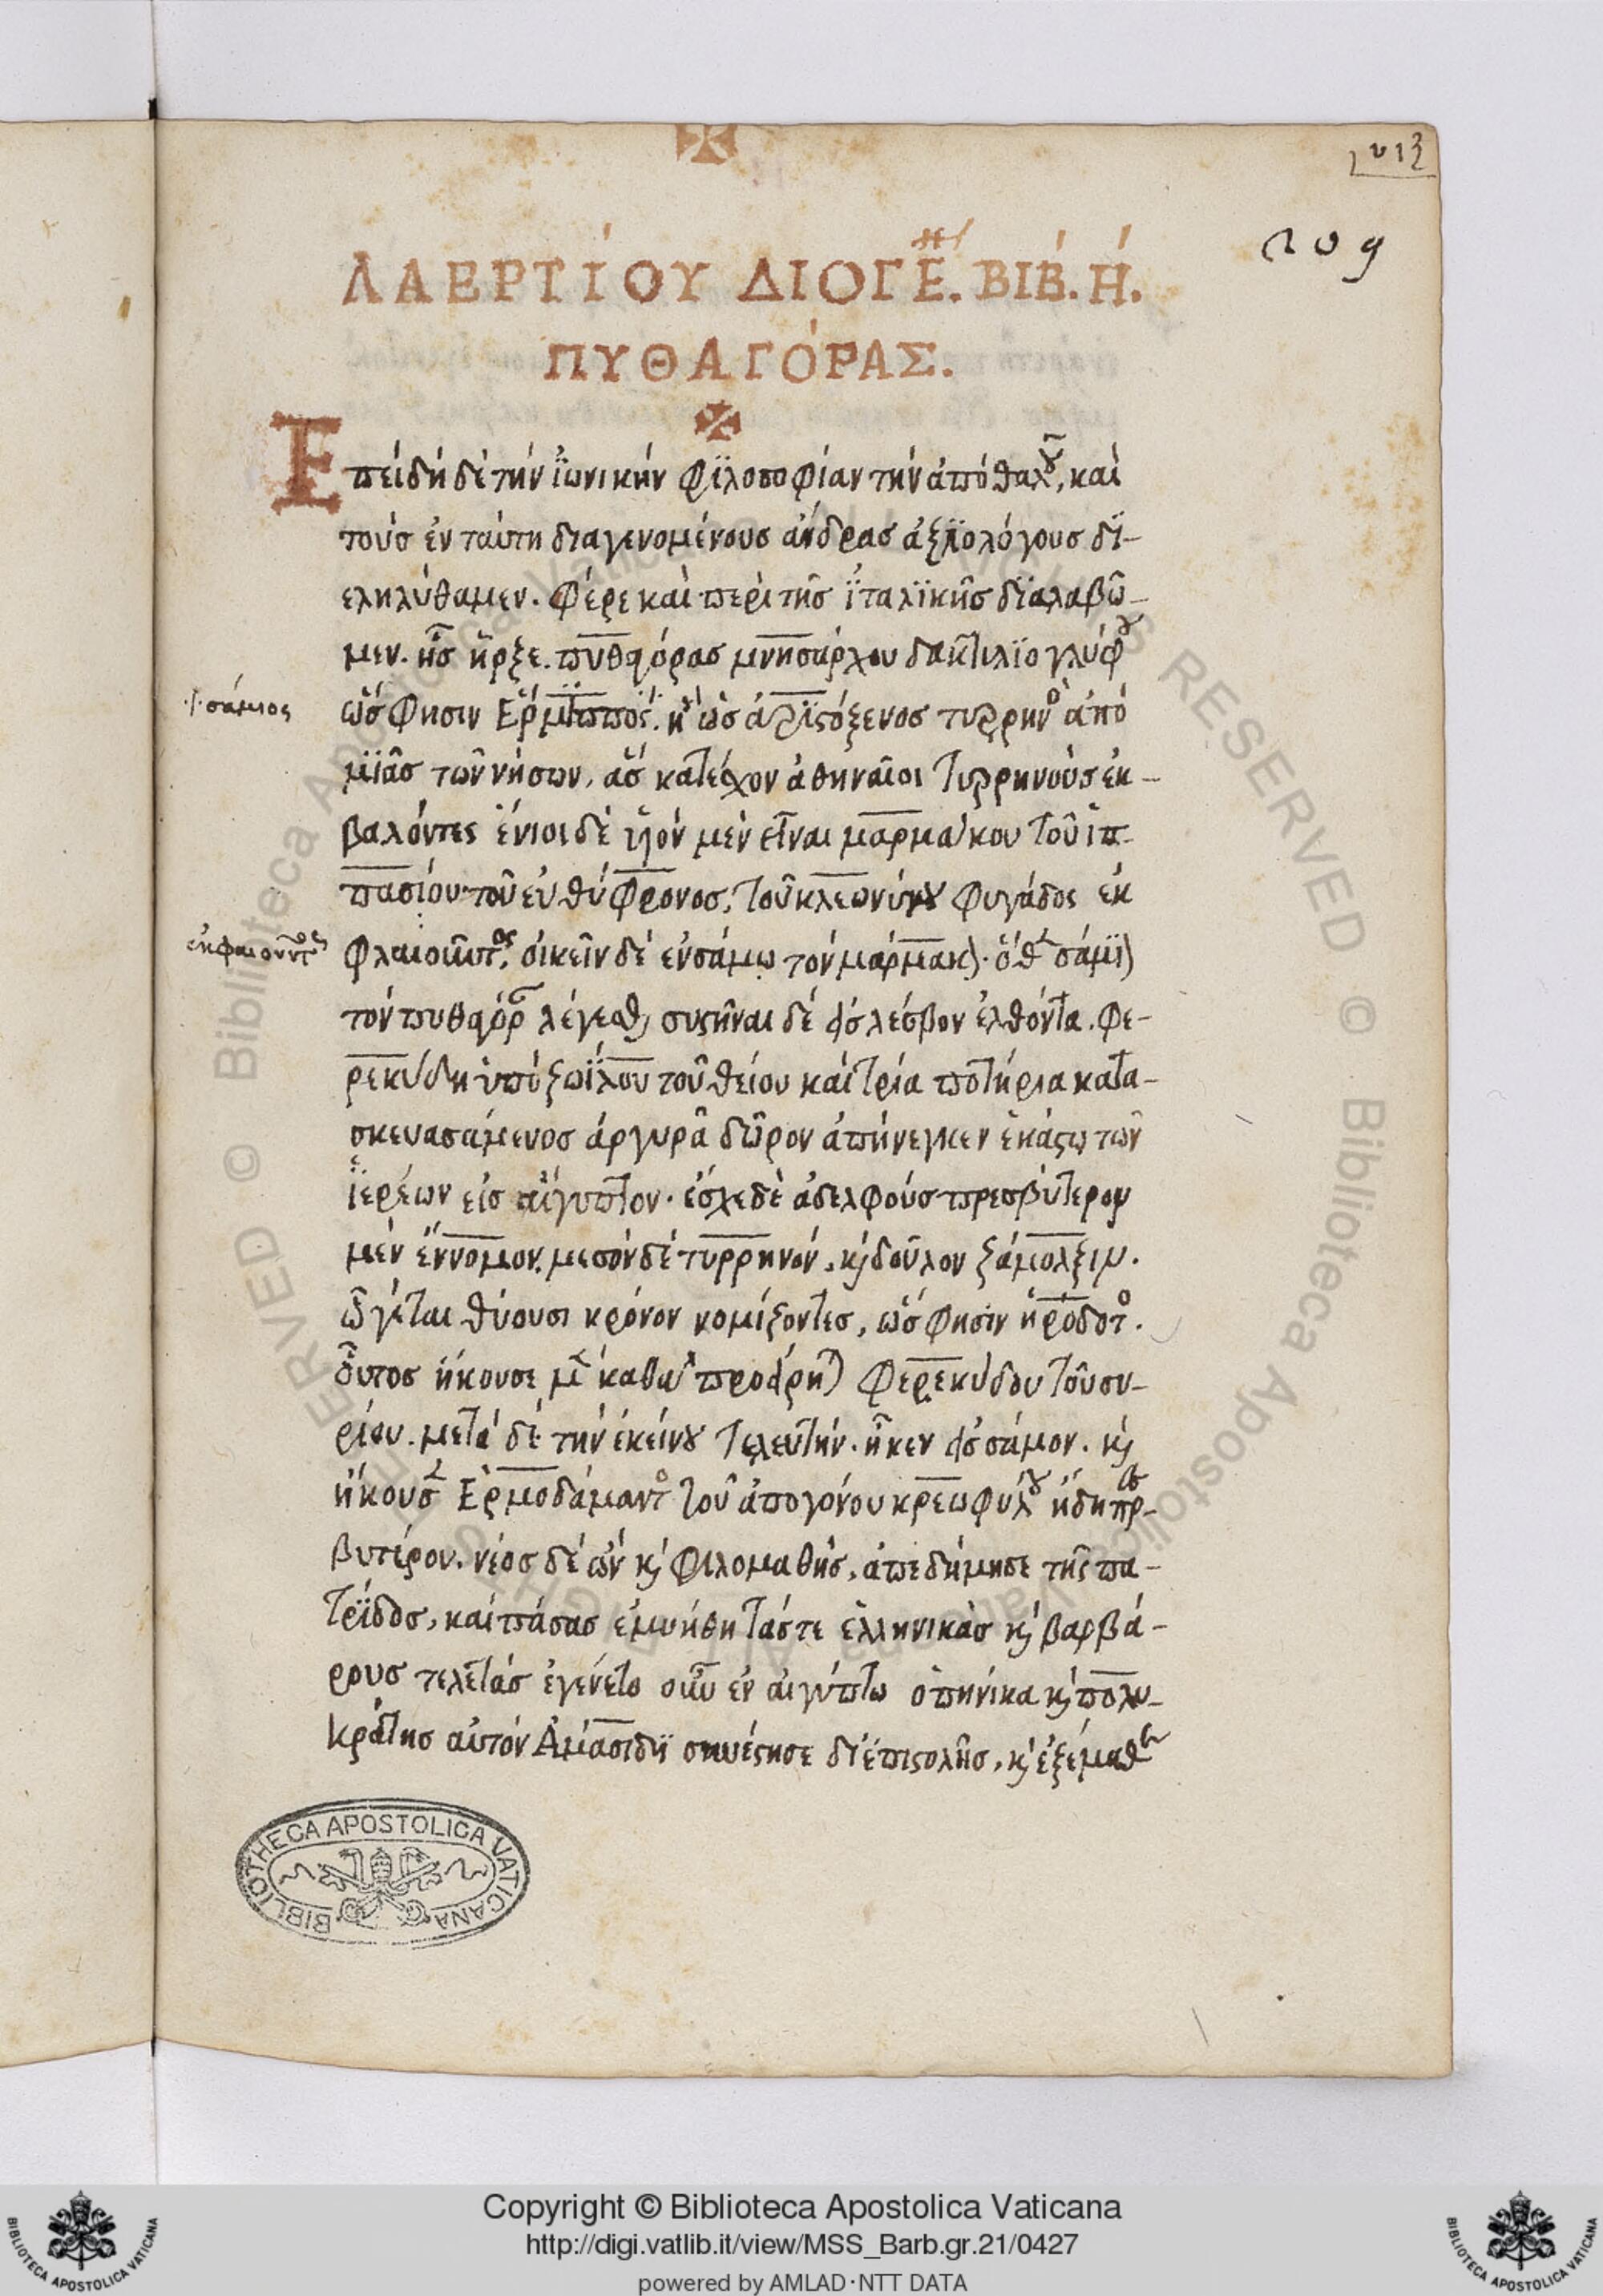 υιζ
209
ΛΑΕΡΤΊΟΥ ΔΙΟΓΕ͂. ΒΙΒ. Η.
ΠΥΘΑΓΌΡΑΣ.
Επείδή δὲ τὴν ἰωνικὴν φϊλοσοφίαν τὴν ἀπὸ θαλοῦ, καὶ
τοὺσ ἐν ταύτη διαγενομένουσ ἄνδρασ ἀξϊολόγουσ δϊ-
εληλύθαμεν. Φέρε καὶ περὶ τῆσ ἰταλϊκῆσ δϊαλαβῶ-
μεν. ἧσ ἦρξε. πυθαγόρασ μνησάρχου δακτυλϊογλύφου
·/· σάμιος
ὥσ φησιν Ερμϊππος. ἢ ὡσ ἀρϊστόξενοσ τυρρηνὸ ἀπὸ
μϊᾶσ τῶν νήσων, ἃσ κατέχον ἀθηναῖοι Τυρρηνοὺσ ἐκ-
βαλόντες ἔνιοι δὲ ὑϊὸν μὲν εἶναι μαρμάκου τοῦ ἱπ-
πασίου τοῦ εὐθύφρονοσ, τοῦ κλεωνύμου φυγάδος ἐκ
Φλαιοῦντος, οἰκεῖν δὲ ἐν σάμω τὸν μάρμακ). ὅθ σάμϊ)
τὸν πυθαγόρ λέγεσθ) συστῆναι δὲ εἰσ λέσβον ἐλθόντα. Φε-
ρεκύδη ὑπὸ ζωΐλου τοῦ θείου καὶ τρία ποτήρια κατα-
σκευασάμενοσ ἀργυρᾶ δῶρον ἀπήνεγκεν ἑκάστω τῶν
ἱερέων εἰσ αἴγυπτον. ἔσχε δὲ ἀδελφοὺσ πρεσβύτερον
μὲν ἔννομον. μεσὸν δὲ τυρρηνόν, κ) δοῦλον ζάμολξιν.
ᾧ γέται θύουσι κρόνον νομίζοντεσ, ὥσ φησὶν ἡρόδοτο.
οὗτοσ ἤκουσε μ καθὰ προείρητ) Φερεκύδου τοῦ συ-
ρίου. μετὰ δὲ τὴν ἐκείνου τελευτὴν. ἧκεν εἰσ σάμον. κ)
ἤκουσ Ερμοδάμαντο τοῦ ἀπογόνου κρεωφύλου ἤδη πρεσ-
βυτέρου. νέοσ δὲ ὢν κ) φιλομαθὴσ, ἀπεδήμησε τῆς πα-
τρϊδοσ, καὶ πάσασ ἐμυήθη τάσ τε ἑλληνικὰσ κ) βαρβά-
ρουσ τελετὰσ ἐγένετο οὖν ἐν αἰγύπτω ὁπηνίκα κ) πολυ-
κράτησ αὐτὸν Ἀμάσιδϊ συνέστησε δι' ἐπιστολῆσ, κ) ἐξέμαθεν
BIBLIOTHECA APOSTOLICA VATICANA
Copyright © Biblioteca Apostolica Vaticana
http://digi.vatlib.it/view/MSS_Barb.gr.21/0427
powered by AMLAD·NTT DATA
BIBLIOTECA APOSTOLICA VATICANA
BIBLIOTECA APOSTOLICA VATICANA